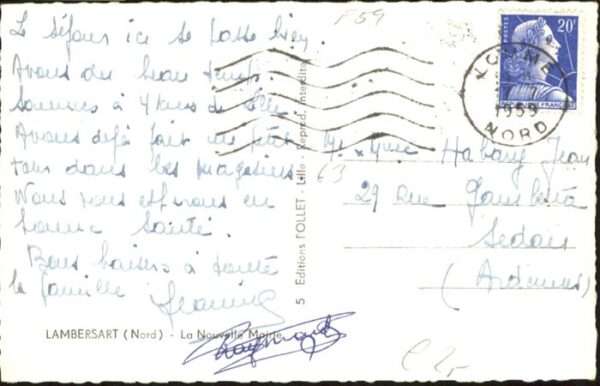 Le séjour ici se passe bien.
Avons du beau temps.
Sommes à 4 kms de Lille
Avons déjà fait un petit
tour dans les magasins
Nous vous espérons en
bonne santé.
Bons baisers à toute
la famille Jeanine
Raymond
LAMBERSART (Nord) - La Nouvelle Mairie
5 Editions FOLLET - Lille - Reprod. interdite
F59
POSTES
20F
FRANÇAISE
1959
NORD
Mr & Mme Habary Jean
29 Rue Gambetta
Sedan
(Ardennes)
63